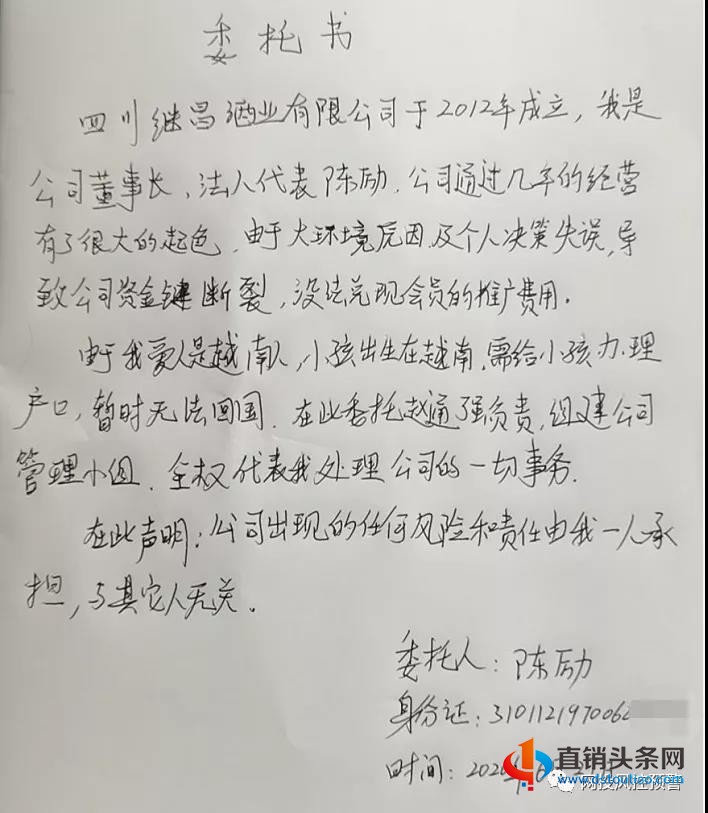 委托书
四川继昌酒业有限公司于2012年成立，我是
公司董事长、法人代表陈励．公司通过几年的经营
有了很大的起色．由于大环境原因及个人决策失误，导
致公司资金键断裂，没法兑现会员的推广费用．
由于我爱人是越南人，小孩出生在越南，需给小孩办理
户口，暂时无法回国．在此委托赵通强负责，组建公司
管理小组．全权代表我处理公司的一切事务．
在此声明：公司出现的任何风险和责任由我一人承
担，与其它人无关．
委托人：陈励
身份证：3101121970062
时间：2020
直销头条网
www.dstoutiao.com
网投风控预警